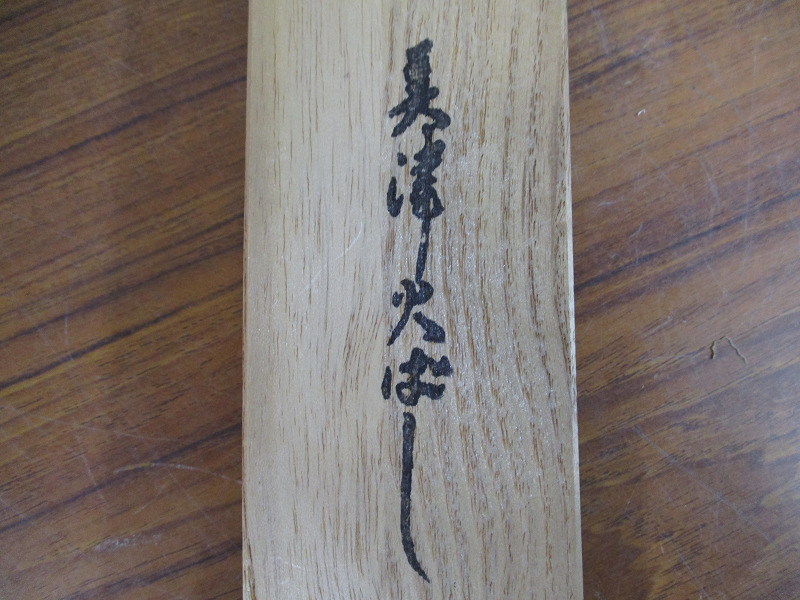 美津火ばし